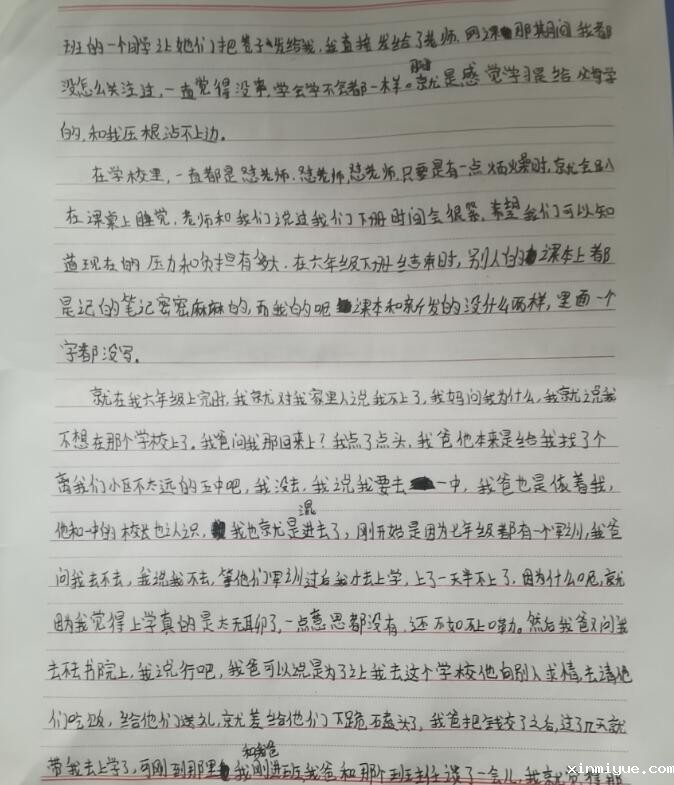 班的一个同学让她们把卷子发给我,我直接发给了老师.网课那期间我都
没怎么关注过,一直觉得没事,学会学不会都一样。那时就是感觉学习是给父母学
的,和我压根沾不上边.
在学校里,一直都是怼老师.怼老师,怼老师,只要是有一点烦燥时,就会趴
在课桌上睡觉,老师和我们说过我们下册时间会很紧,希望我们可以知
道现在的压力和负担有多大.在六年级下册结束时,别人的课本上都
是记的笔记密密麻麻的,而我的呢课本和新发的没什么两样,里面一个
字都没写.
就在我六年级上完时,我就对我家里人说我不上了,我妈问我为什么,我就说我
不想在那个学校上了.我爸问我那回来上?我点了点头,我爸他本来是给我找了个
离我们小区不太远的五中吧,我没去,我说我要去一中,我爸也是依着我,
他和一中的校长也认识,我也就是混进去了,刚开始是因为七年级都有一个军训,我爸
问我去不去,我说我不去,等他们军训过后我才去上学,上了一天半不上了,因为什么呢,就
因为我觉得上学真的是太无聊了,一点意思都没有,还不如不上嘞.然后我爸又问我
去不去书院上,我说行吧,我爸可以说是为了让我去这个学校他向别人求情,去请他
们吃饭,给他们送礼,就差给他们下跪磕头了,我爸把钱交了之后,过了几天就
带我去上学了,可刚到那里和我爸我刚进班,我爸和那个班主任谈了一会儿,我就觉得那
xinmiyue.com